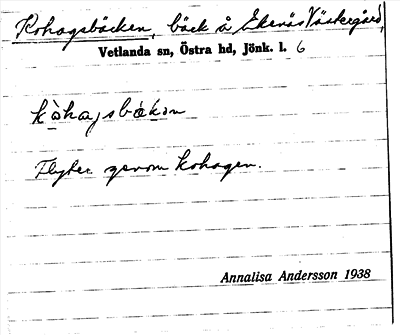 Kohagsbäcken, bäck å Ekenäs Västergård,
Vetlanda sn, Östra hd, Jönk. l. 6
Flyter genom kohagen.
Annalisa Andersson 1938